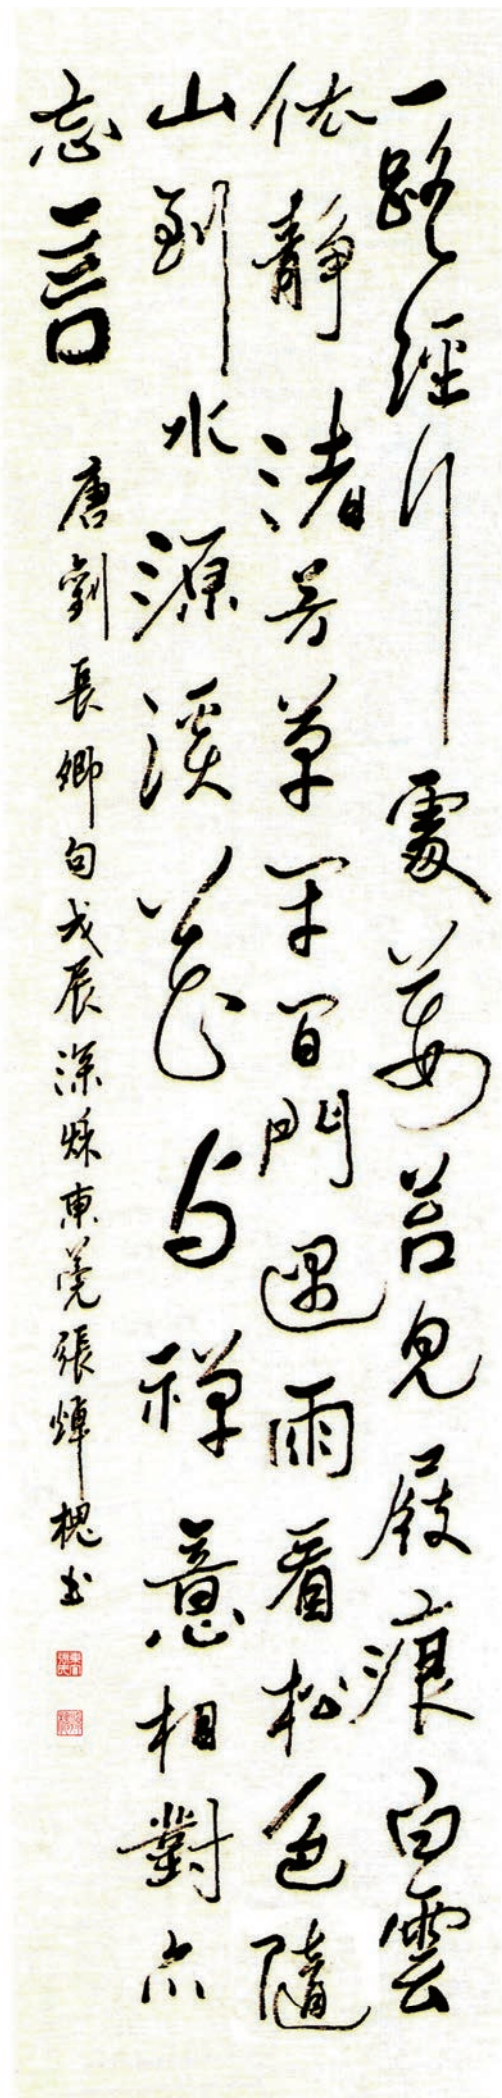 一路經行處莓苔見屐痕白雲
依靜渚芳草閉閒門過雨看松色隨
山到水源溪花与禪意相對亦
忘言
唐劉長卿句戊辰深秋東莞張焯槐書